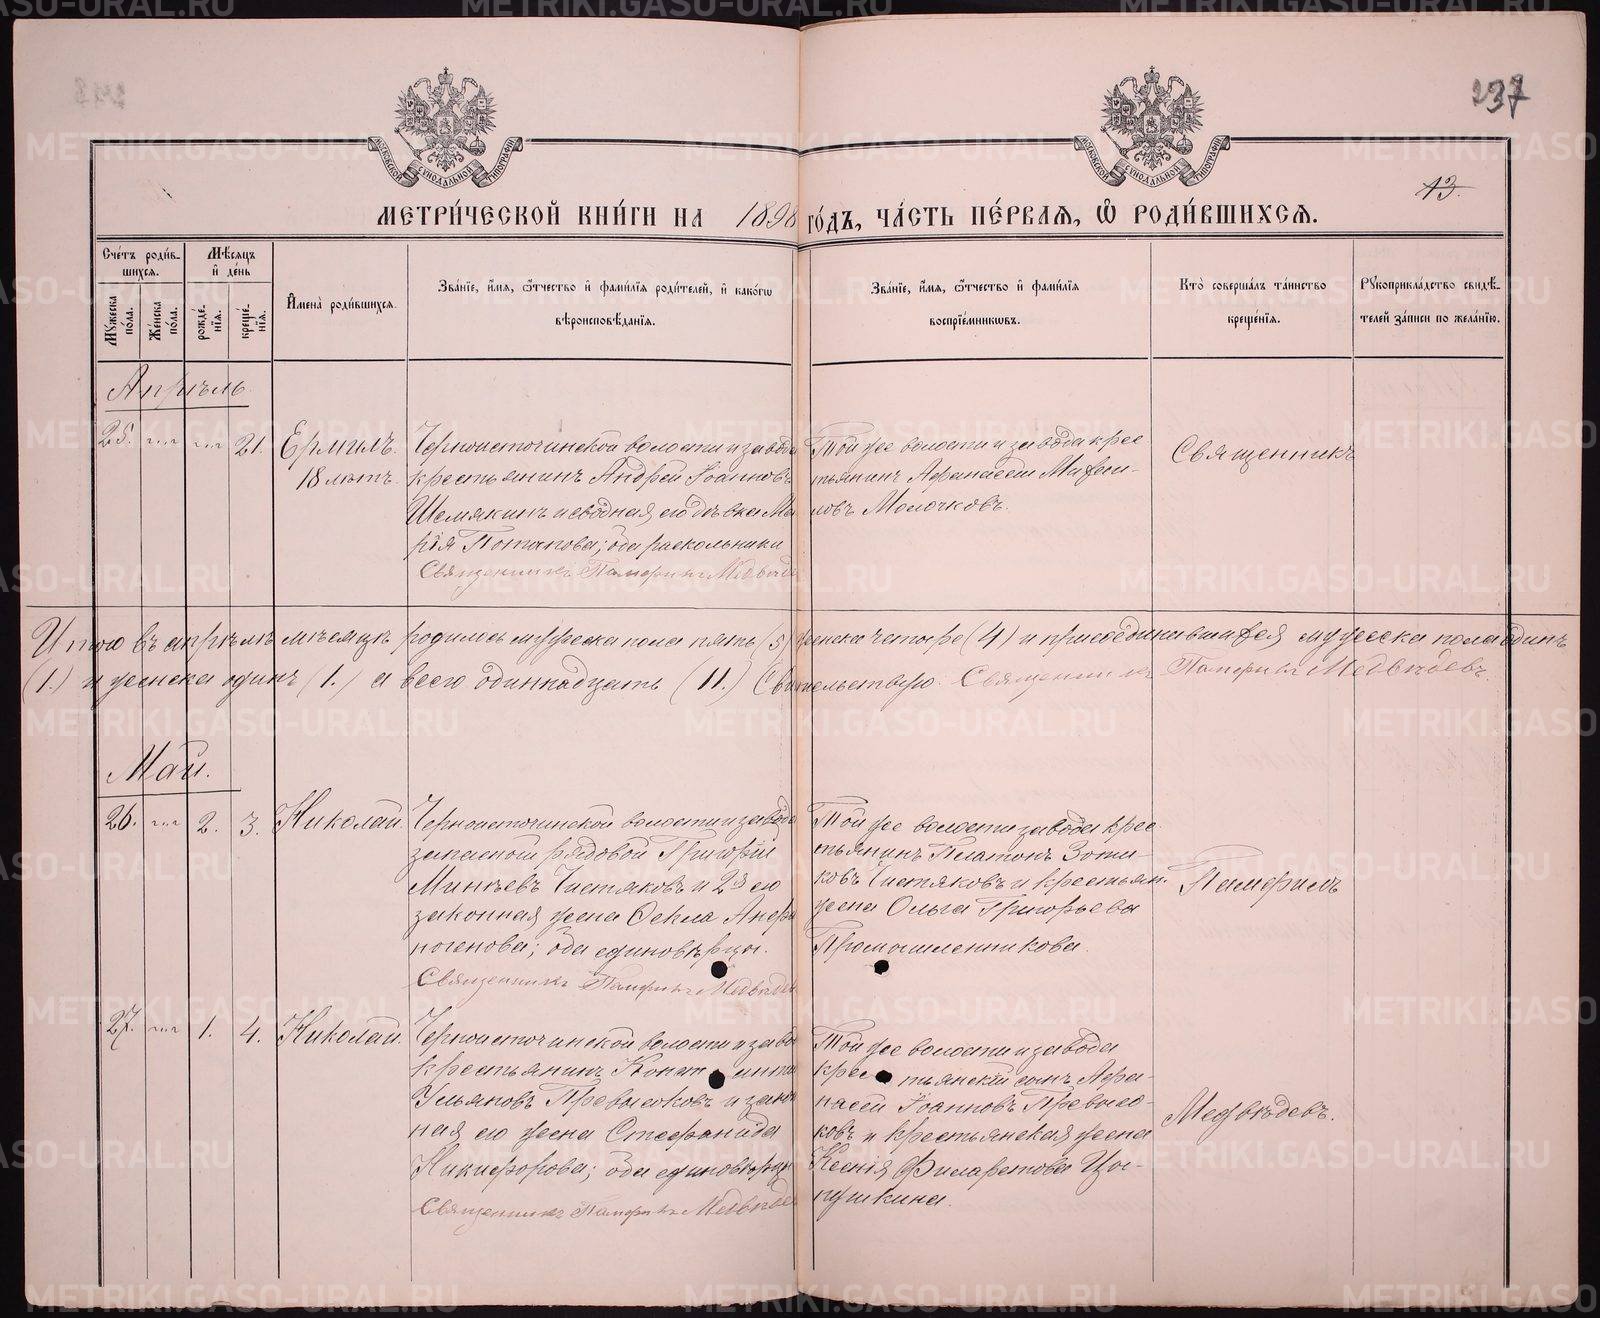 237
13.
МОСКОВСКОЙ СѴНОДАЛЬНОЙ ТИПОГРАФІИ
МОСКОВСКОЙ СѴНОДАЛЬНОЙ ТИПОГРАФІИ
МЕТРИ́ЧЕСКОЙ КНИ́ГИ НА 1898 ГО́ДЪ, ЧА́СТЬ ПЕ́РВАѦ, Ѽ РОДИ́ВШИХСѦ.
Сче́тъ роди́в-
шихсѧ.
Мꙋ́жеска по́ла.
Же́нска по́ла.
Мѣ́сѧцъ
и҆ де́нь
рожде́-
нїѧ.
креще́-
нїѧ.
И҆мена̀ роди́вшихсѧ.
Зва́нїе, и҆́мѧ, ѻ҆́тчество и҆ фами́лїѧ роди́телей, и҆ како́гѡ
вѣроисповѣ́данїѧ.
Зва́нїе, и҆́мѧ, ѻ҆́тчество и҆ фами́лїѧ
воспрїе́мникѡвъ.
Кто̀ соверша́лъ та́инство
креще́нїѧ.
Рꙋкоприкла́дство свидѣ́-
телей за́писи по жела́нїю.
Апрѣль.
25. 21. Ермилъ.
18 лѣтъ.
Черноисточинской волости и завода
крестьянинъ Андрей Іоанновъ
Шемякинъ и сводная его дѣвка Ма
рія Потапова; оба раскольники
Священникъ Памфилъ Медвѣде
Той же волости и завода крес
тьянинъ Афанасій Михаи-
ловъ Молочковъ.
Священникъ
Итого въ апрѣлѣ мѣсяцѣ родилось мужеска пола пять (5) женска четыре (4) и присоединившихся мужеска пола одинъ
(1.) и женска одинъ (1.) а всего одиннадцать (11.) Свидѣтельствую. Священникъ Памфилъ Медвѣдевъ.
Май.
26. 2. 3. Николай.
Черноисточинской волости и завода
запасной рядовой Григорій
Минѣевъ Чистяковъ и 2й его
законная жена Ѳекла Анфи
ногенова; оба единовѣрцы.
Священникъ Памфилъ Медвѣдев
Той же волости завода крес
тьянинъ Платонъ Зоти-
ковъ Чистяковъ и крестьян.
жена Ольга Григорьева
Промышленникова.
Памфилъ
27. 1. 4. Николай.
Черноисточинской волости и заво
крестьянинъ Константин
Ульяновъ Превысоковъ и закон
ная его жена Стефанида
Никифорова; оба единовѣрц
Священникъ Памфилъ Медвѣдев
Той же волости и завода
крестьянскій сынъ Афа-
насій Іоанновъ Превысо-
ковъ и крестьянская жена
Ксенія Филаретова
Медвѣдевъ.
METRIKI.GASO-URAL.RU